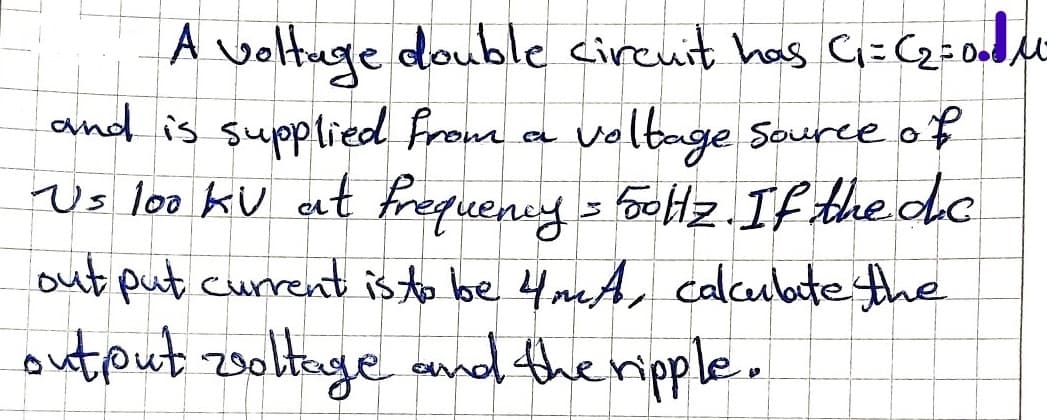 A voltage double circuit has C1=C2=0.1μ
and is supplied from a voltage source of
Vs 100 kV at frequency = 50Hz. If the d.c
out put current is to be 4mA, calculate the
output voltage and the ripple.